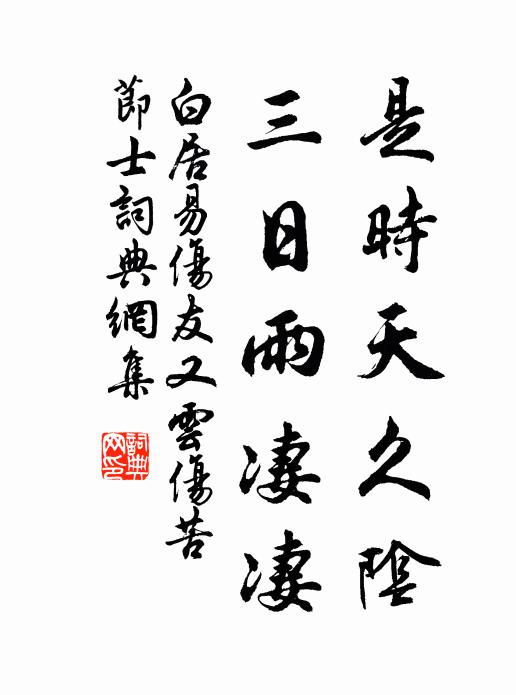 是時天久陰
三日雨凄凄
白居易傷友又雲傷苦
節士詞典網集
詞典网印